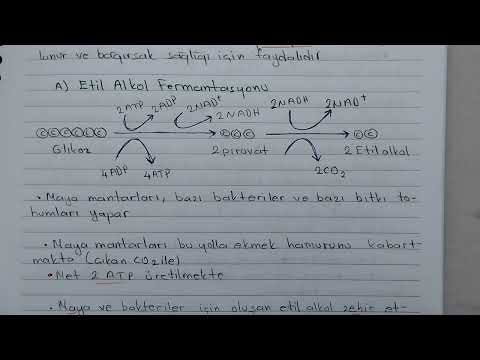 lanır ve bağırsak sağlığı için faydalıdır
A) Etil Alkol Fermantasyonu
2ATP 2ADP 2NAD⁺ 2NADH 2NADH 2NAD⁺
C C C C C C → C C C → C C
Glikoz 2 piruvat 2 Etil alkol
4ADP 4ATP 2CO₂
• Maya mantarları, bazı bakteriler ve bazı bitki to-
humları yapar
• Maya mantarları bu yolla ekmek hamurunu kabart-
makta (çıkan CO₂ ile)
• Net 2 ATP üretilmekte
• Maya ve bakteriler için oluşan etil alkol zehir et-